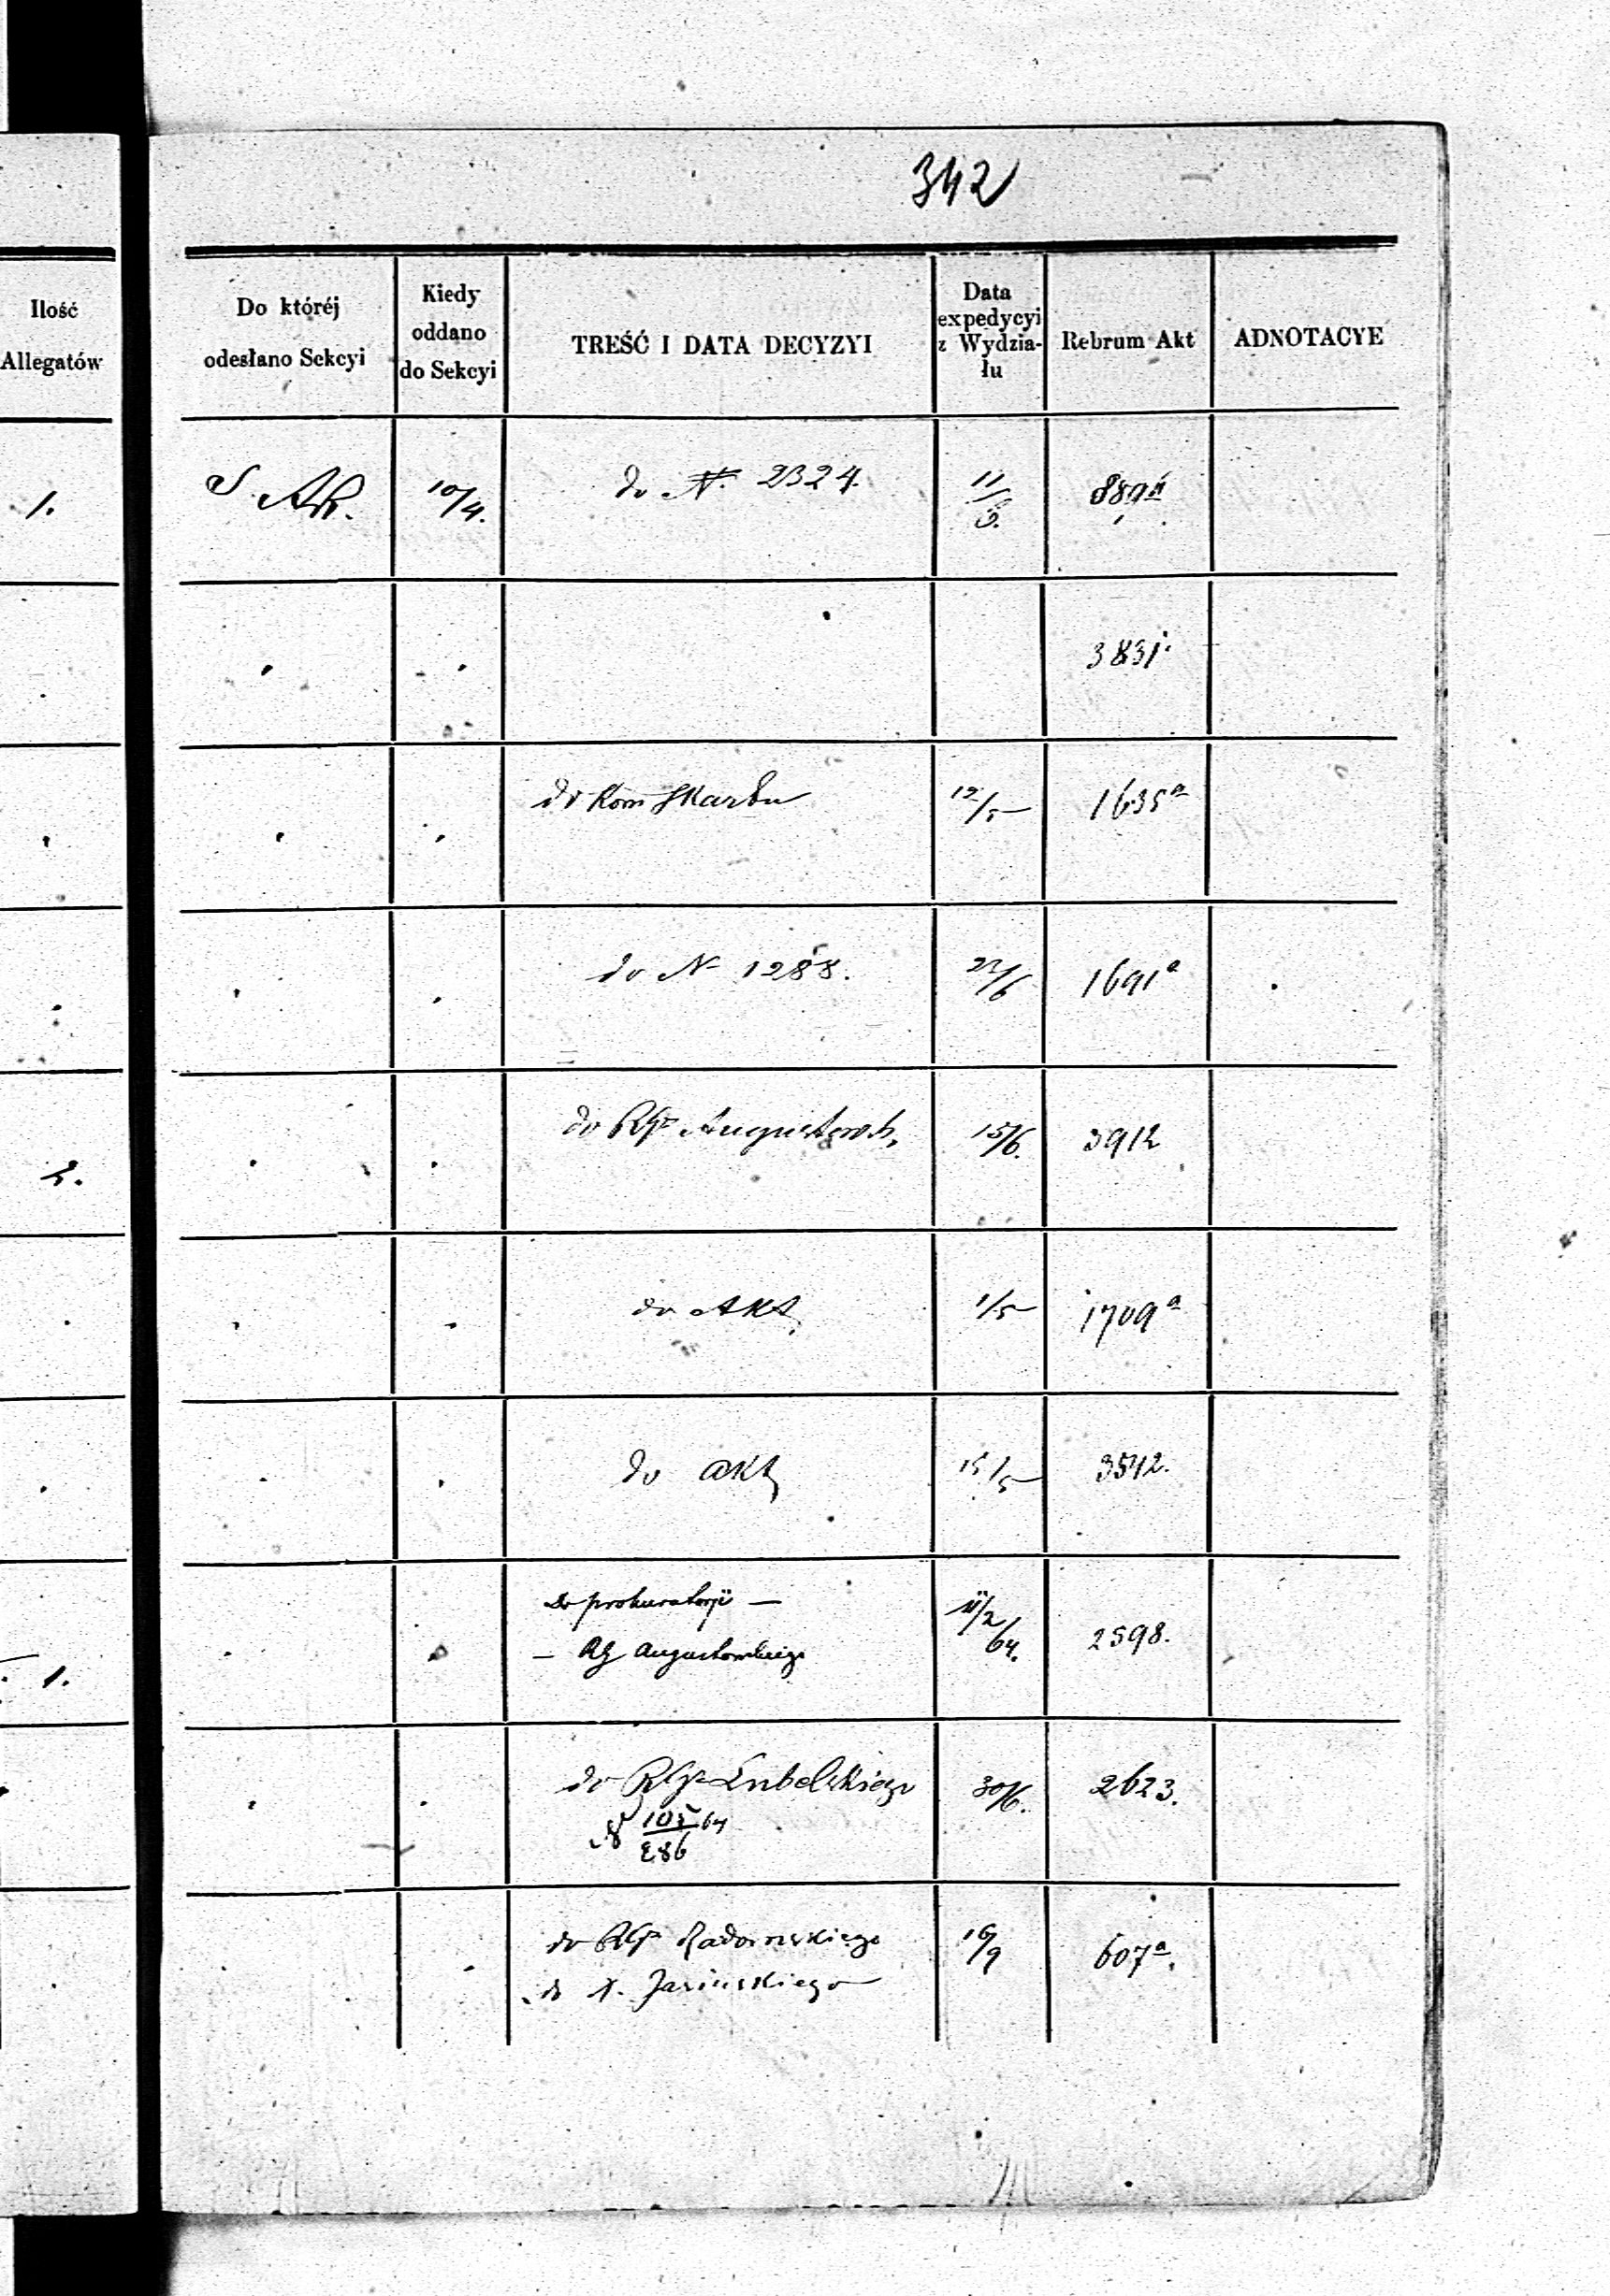 342
Ilość
Allegatów
Do któréj
odesłano Sekcyi
Kiedy
oddano
do Sekcyi
TREŚĆ I DATA DECYZYI
Data
expedycyi
z Wydzia-
łu
Rebrum Akt
ADNOTACYE
1. 10/4. do N. 2324. 11/5. 889a
3831.
do Kom Skarbu 12/5 1635a
do N 1288. 22/6 1691a
2. do RGo Augustowsk, 15/6. 3912
do Akt, 1/5 1709a
do akt, 15/5 3542.
Do prokuratorji — 11/2
1. — RG Augustowskiego 64. 2598.
do RGo Lubelskiego 30/6. 2623.
N 105/286 64
do RGo Radomskiego 16/9 607a.
do X. Jasińskiego